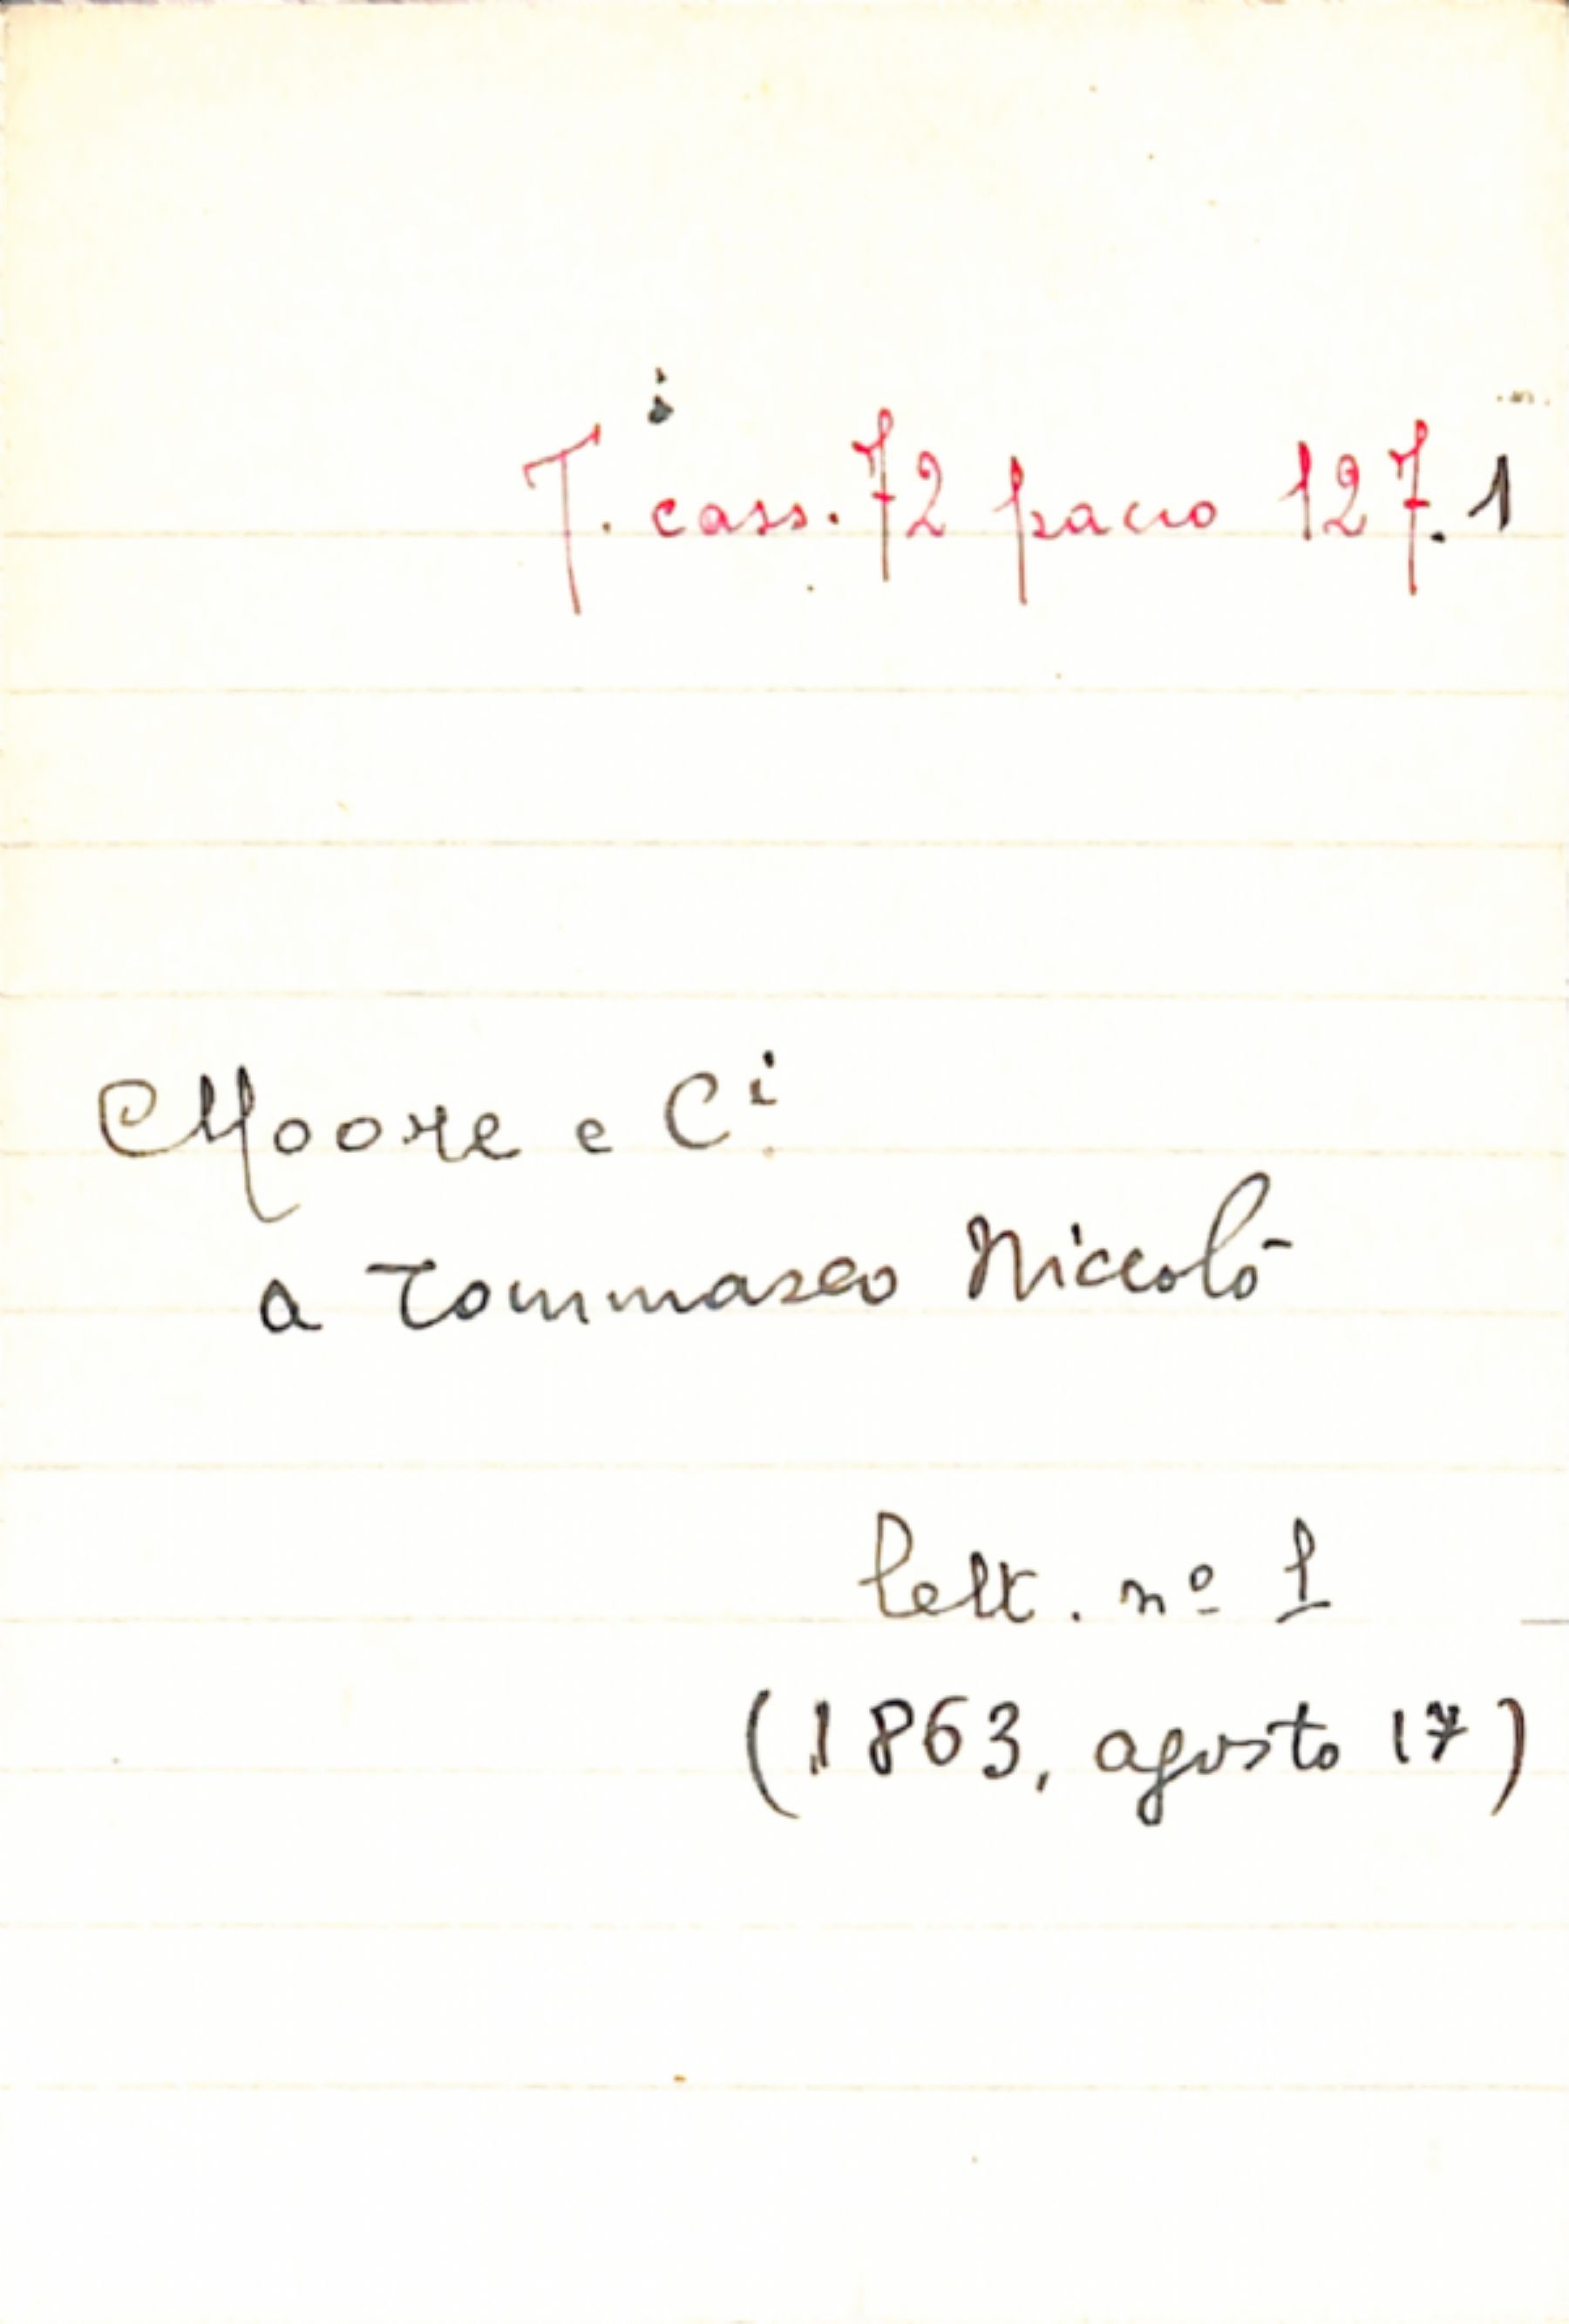 T. cass. 72 pacco 127.1
Moore e Cⁱ
a Tommaseo Niccolò
lett. nº 1
(1863, agosto 17)